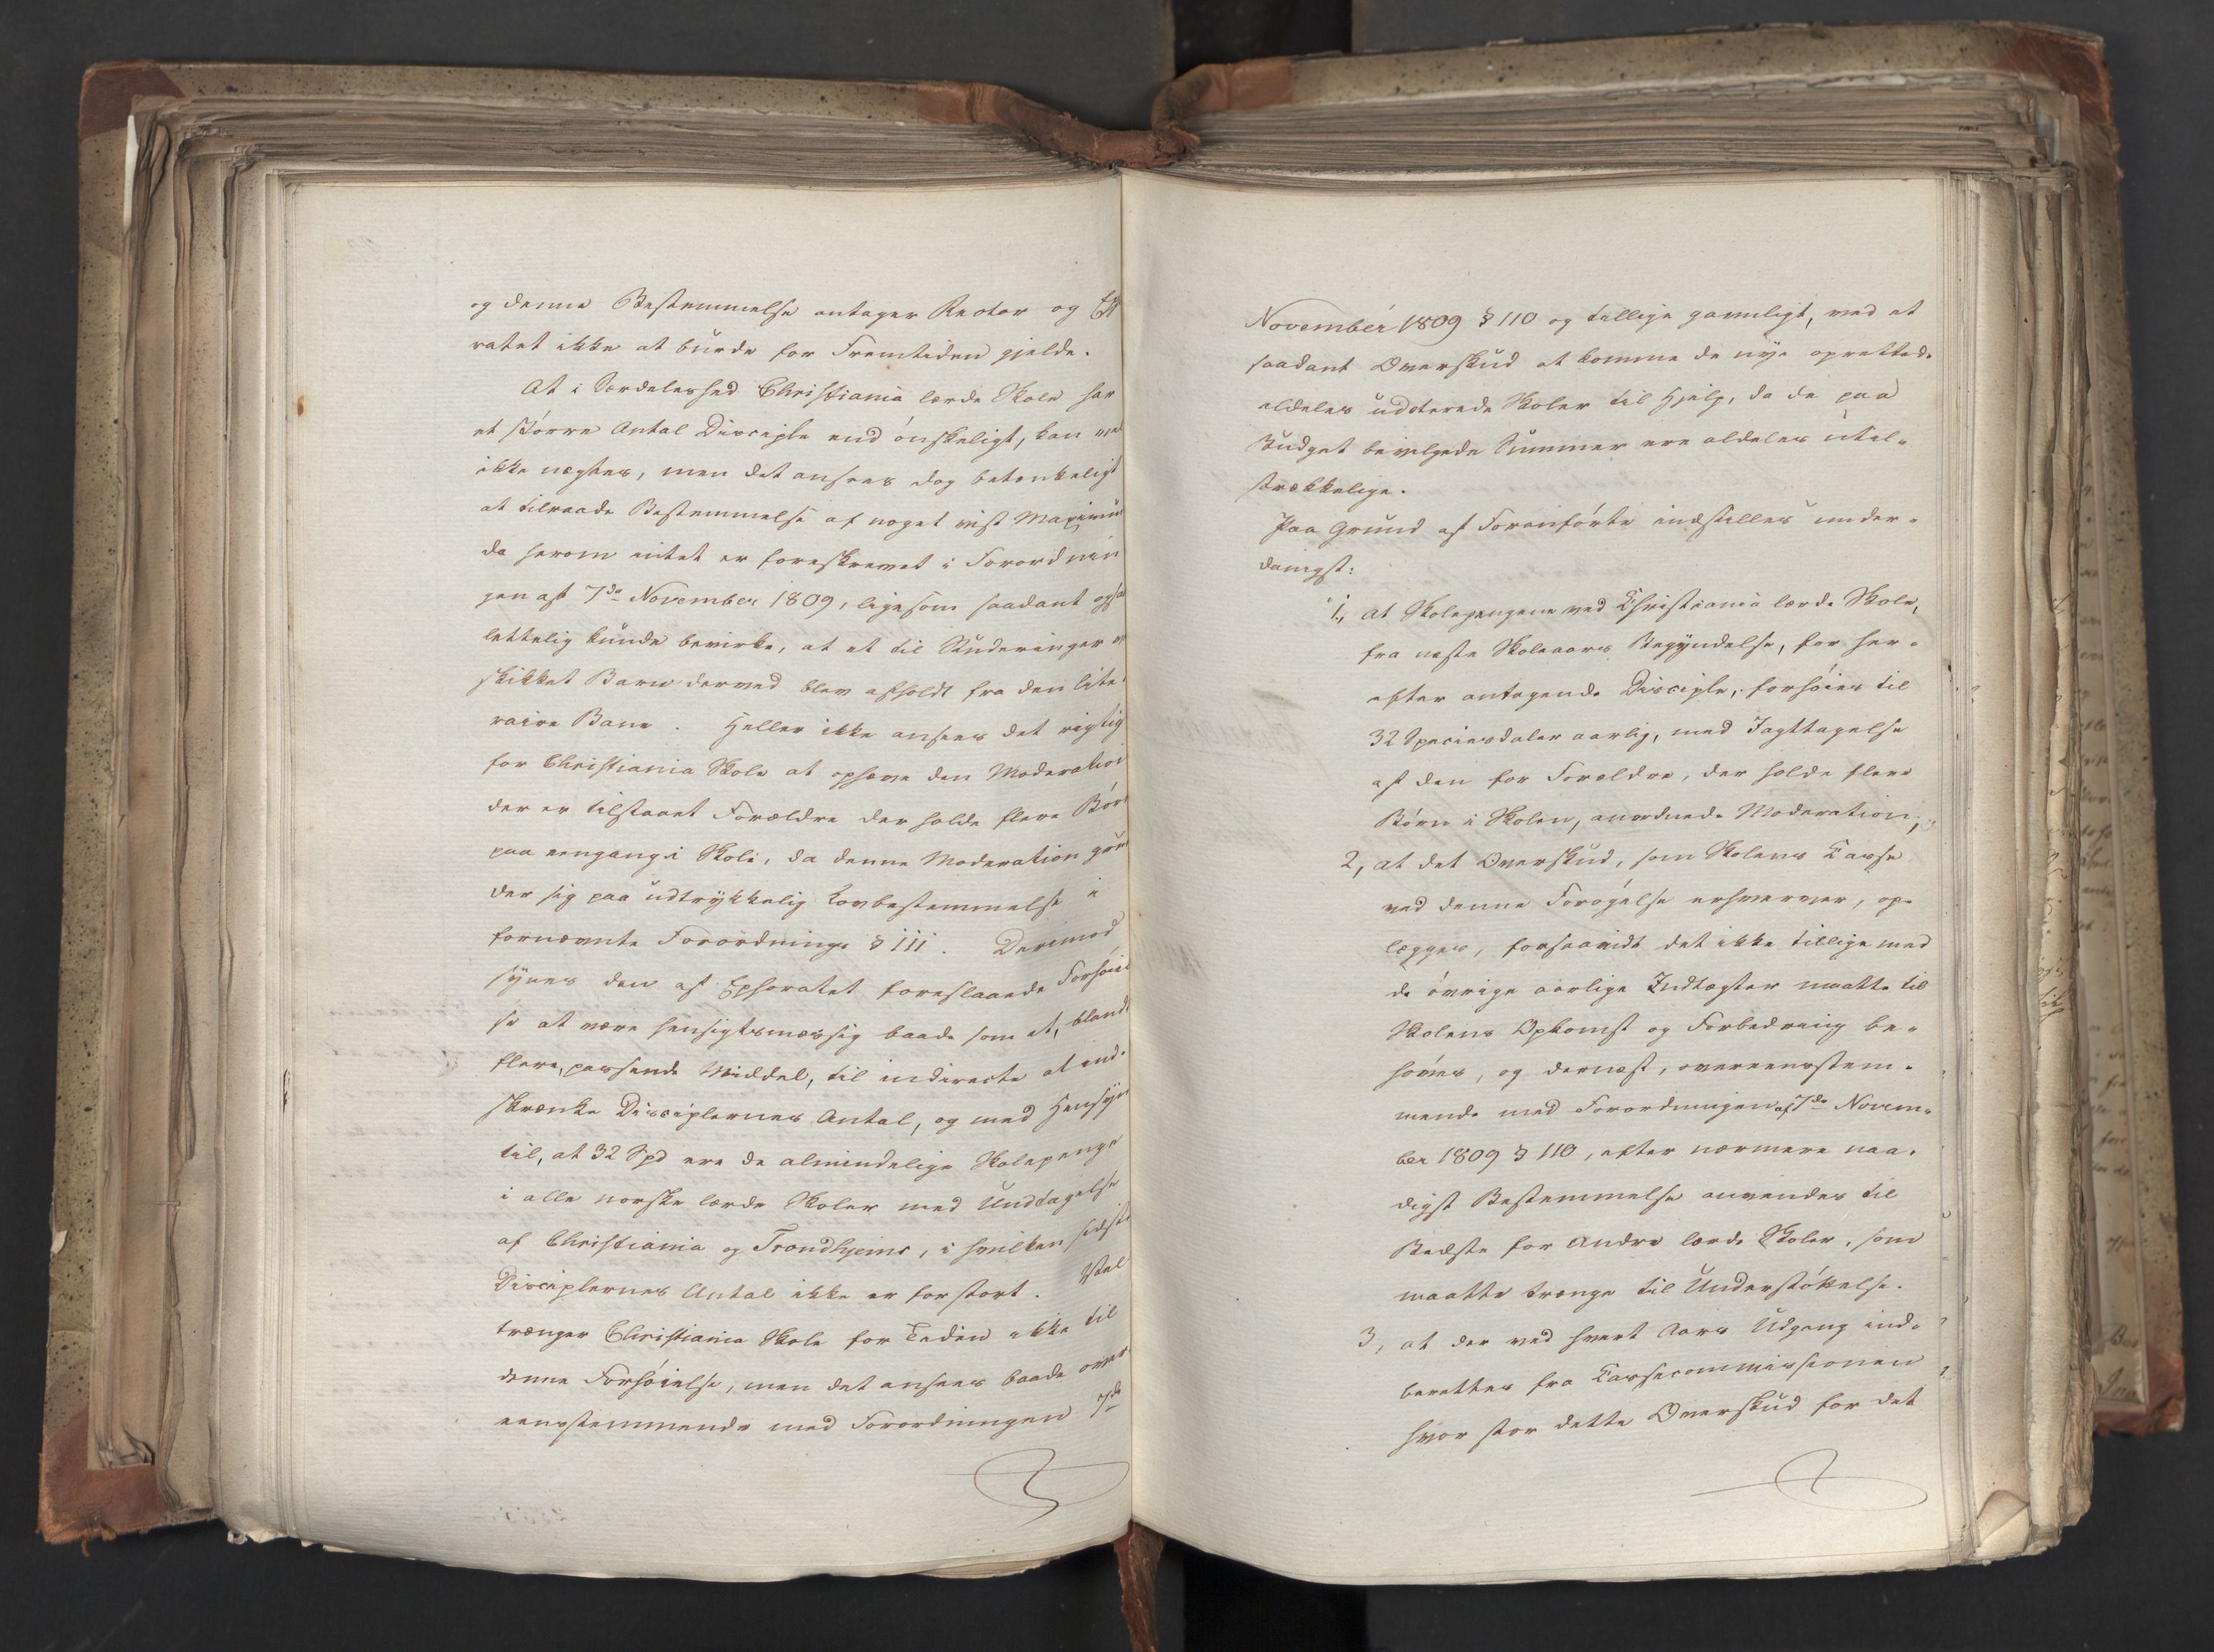 og denne Bestemmelse antager Rector og Epho
ratet ikke at burde for Fremtiden gjelde.
At i Særdeleshed Christiania lærde Skole har
et större Antal Disciple end önskeligt, kan vel
ikke negtes, men det ansees dog betenkeligt
at tilraade Bestemmelse af noget vist Maximum
da herom intet er foreskrevet i Forordnin
gen af 7de November 1809, ligesom saadant ogsaa
lettelig kunde bevirke, at et til Studeringer
skikket Barn derved blev afholdt fra den lite-
raire Bane. Heller ikke ansees det rigtig
for Christiania Skole at ophæve den Moderation
der er tilstaaet Forældre der holde flere Börn
paa eengang i Skole, da denne Moderation grun
der sig paa udtrykkelig Lovbestemmelse i
fornævnte Forordnings § 111. Derimod
synes den af Ephoratet foreslaaede Forhöiel
se at være hensigtsmæssig baade som et, blandt
flere, passende Middel, til indirecte at ind-
skrænke Disciplernes Antal, og med Hensyn
til, at 32 Spd ere de almindelige Skolepenge
i alle norske lærde Skoler med Undtagelse
af Christiania og Trondhjems, i hvilken sidste
Disciplernes Antal ikke er for stort. Vel
trænger Christiania Skole for Tiden ikke til
denne Forhöielse, men det ansees baade over
eensstemmende med Forordningen 7de
November 1809 § 110 og tillige gavnligt, med et
saadant Overskud at komme de nye oprettede
aldeles udoterede Skoler til Hjelp, da de paa
Budget bevilgede Summer ere aldeles util-
strækkelige.
Paa Grund af Foranförte indstilles under-
danigst:
1, at Skolepengene ved Christiania lærde Skole,
fra næste Skoleaars Begyndelse, for her-
efter antagende Disciple, forhöies til
32 Speciesdaler aarlig, med Iagttagelse
af den for Forældre, der holde flere
Börn i Skolen, anordnede Moderation;
2, at det Overskud, som Skolens Casse
ved denne Forögelse erhverver, op-
lægges, forsaavidt det ikke tillige med
de övrige aarlige Indtægter maatte til
Skolens Opkomst og Forbedring be-
höves, og dernæst, overeensstem-
mende med Forordningen af 7de Novem-
ber 1809 § 110, efter nærmere naa-
digst Bestemmelse anvendes til
Bedste for andre lærde Skoler, som
maatte trænge til Understöttelse.
3, at der ved hvert Aars Udgang ind-
berettes fra Cassecommissionen
hvor stor dette Overskud for det